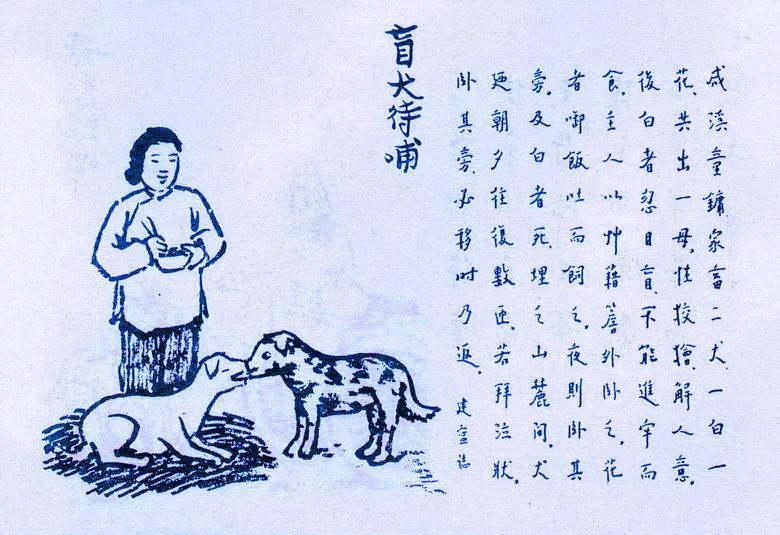 盲犬待哺
咸溪童鏞家畜二犬、一白一
花、共出一母、性狡獪、解人意。
後白者忽目盲、不能進牢而
食、主人以艸藉簷外卧之。花
者啣飯吐而飼之。夜則卧其
旁。及白者死、埋之山麓间、犬
廼朝夕往復數匝、若拜泣狀。
卧其旁、必移时乃返。